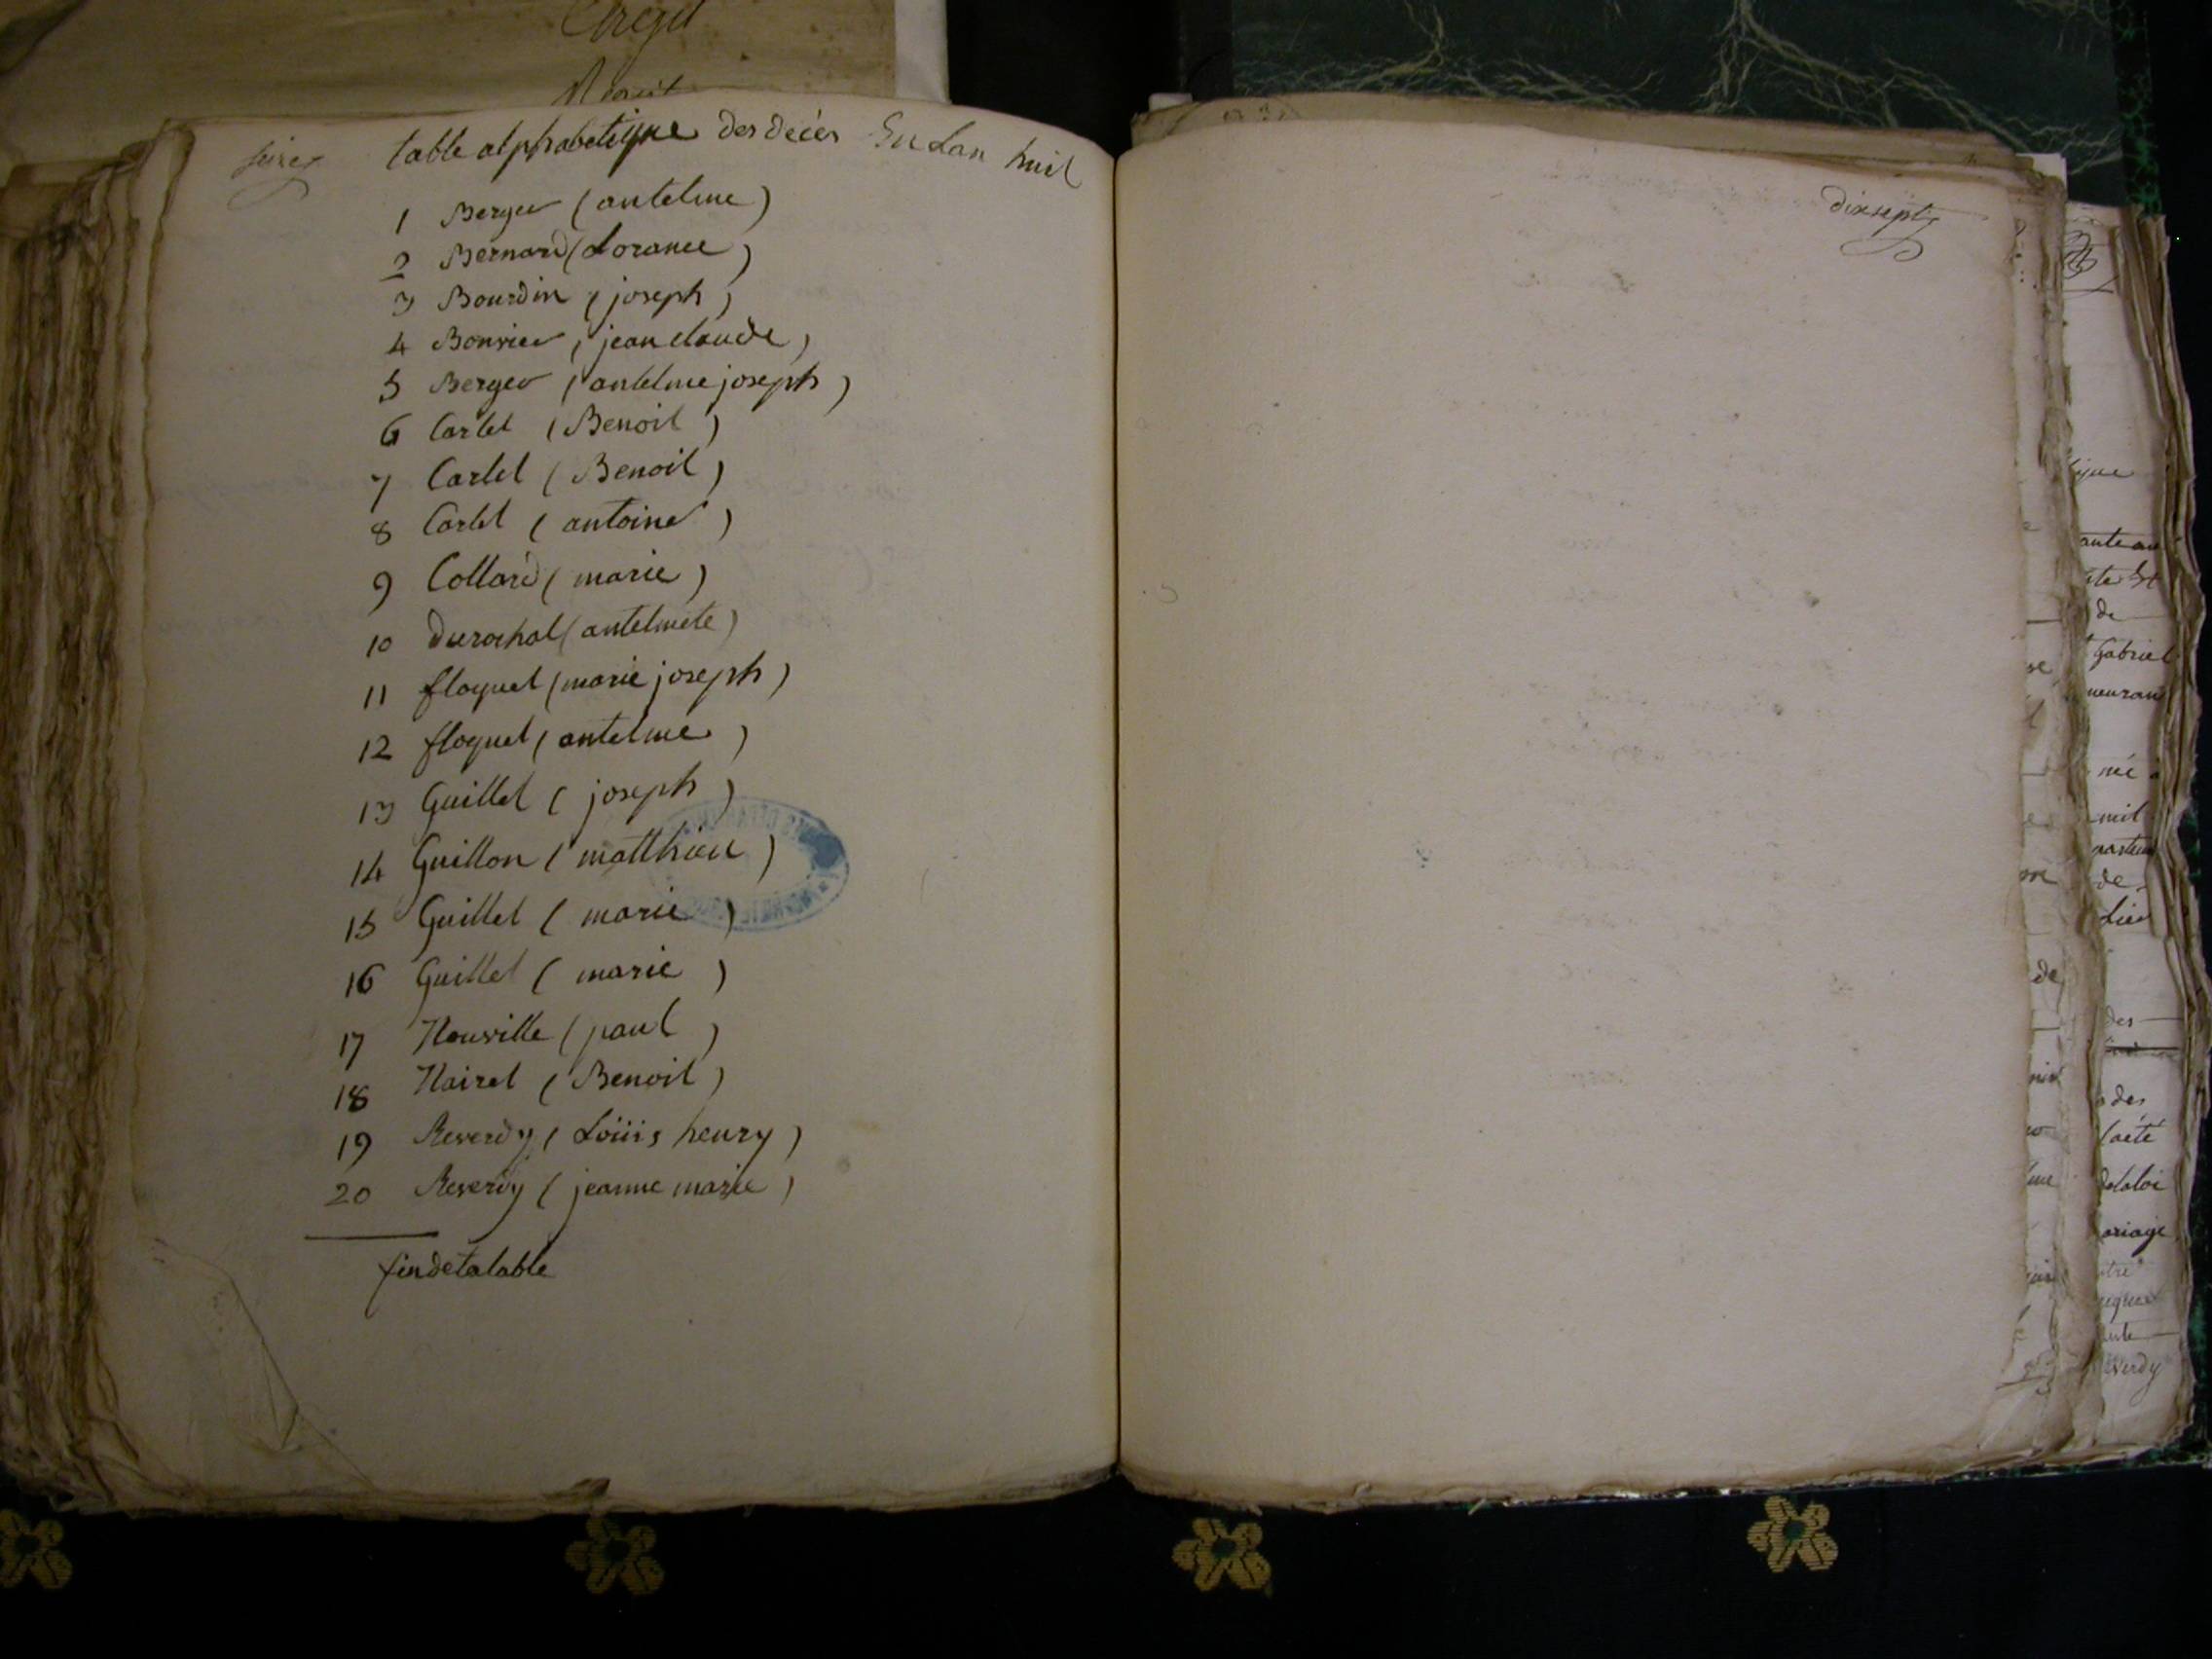 seize
table alphabetique des décès En Lan huit
1 Berger (antelme)
2 Bernard (Lorance)
3 Bourdin (joseph)
4 Bonvier (jean claude)
5 Berger (antelme joseph)
6 Cartet (Benoit)
7 Cartet (Benoit)
8 Cartet (antoine)
9 Collard (marie)
10 Durochat (antelmete)
11 floquet (marie joseph)
12 floquet (antelme)
13 Guillet (joseph)
14 Guillon (matthieu)
15 Guillet (marie)
16 Guillet (marie)
17 Nouville (paul)
18 Nairet (Benoit)
19 Reverdy (Loüis henry)
20 Reverdy (jeanne marie)
fin de la table
dix sept
Gabriel
né
mil
de
de
des
ariage